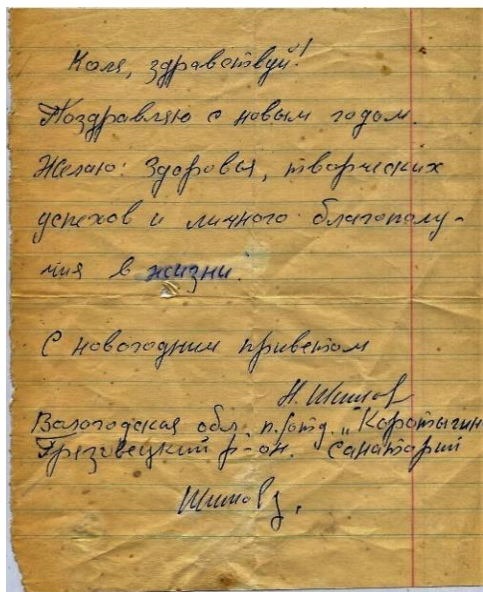 Коля, здравствуй!
Поздравляю с новым годом.
Желаю: Здоровья, творческих
успехов и личного благополу-
чия в жизни.
С новогодним приветом
Н. Шилов
Вологодская обл. п/отд. „Коротыгин
Грязовецкий р-он. Санаторий